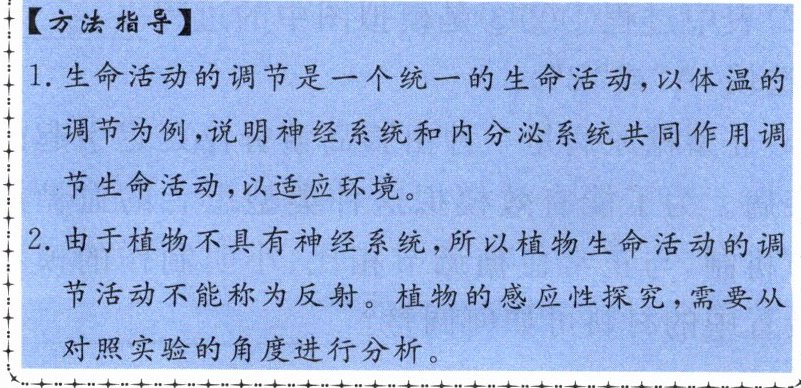 【方法指导】
1. 生命活动的调节是一个统一的生命活动,以体温的
调节为例,说明神经系统和内分泌系统共同作用调
节生命活动,以适应环境。
2. 由于植物不具有神经系统,所以植物生命活动的调
节活动不能称为反射。植物的感应性探究,需要从
对照实验的角度进行分析。